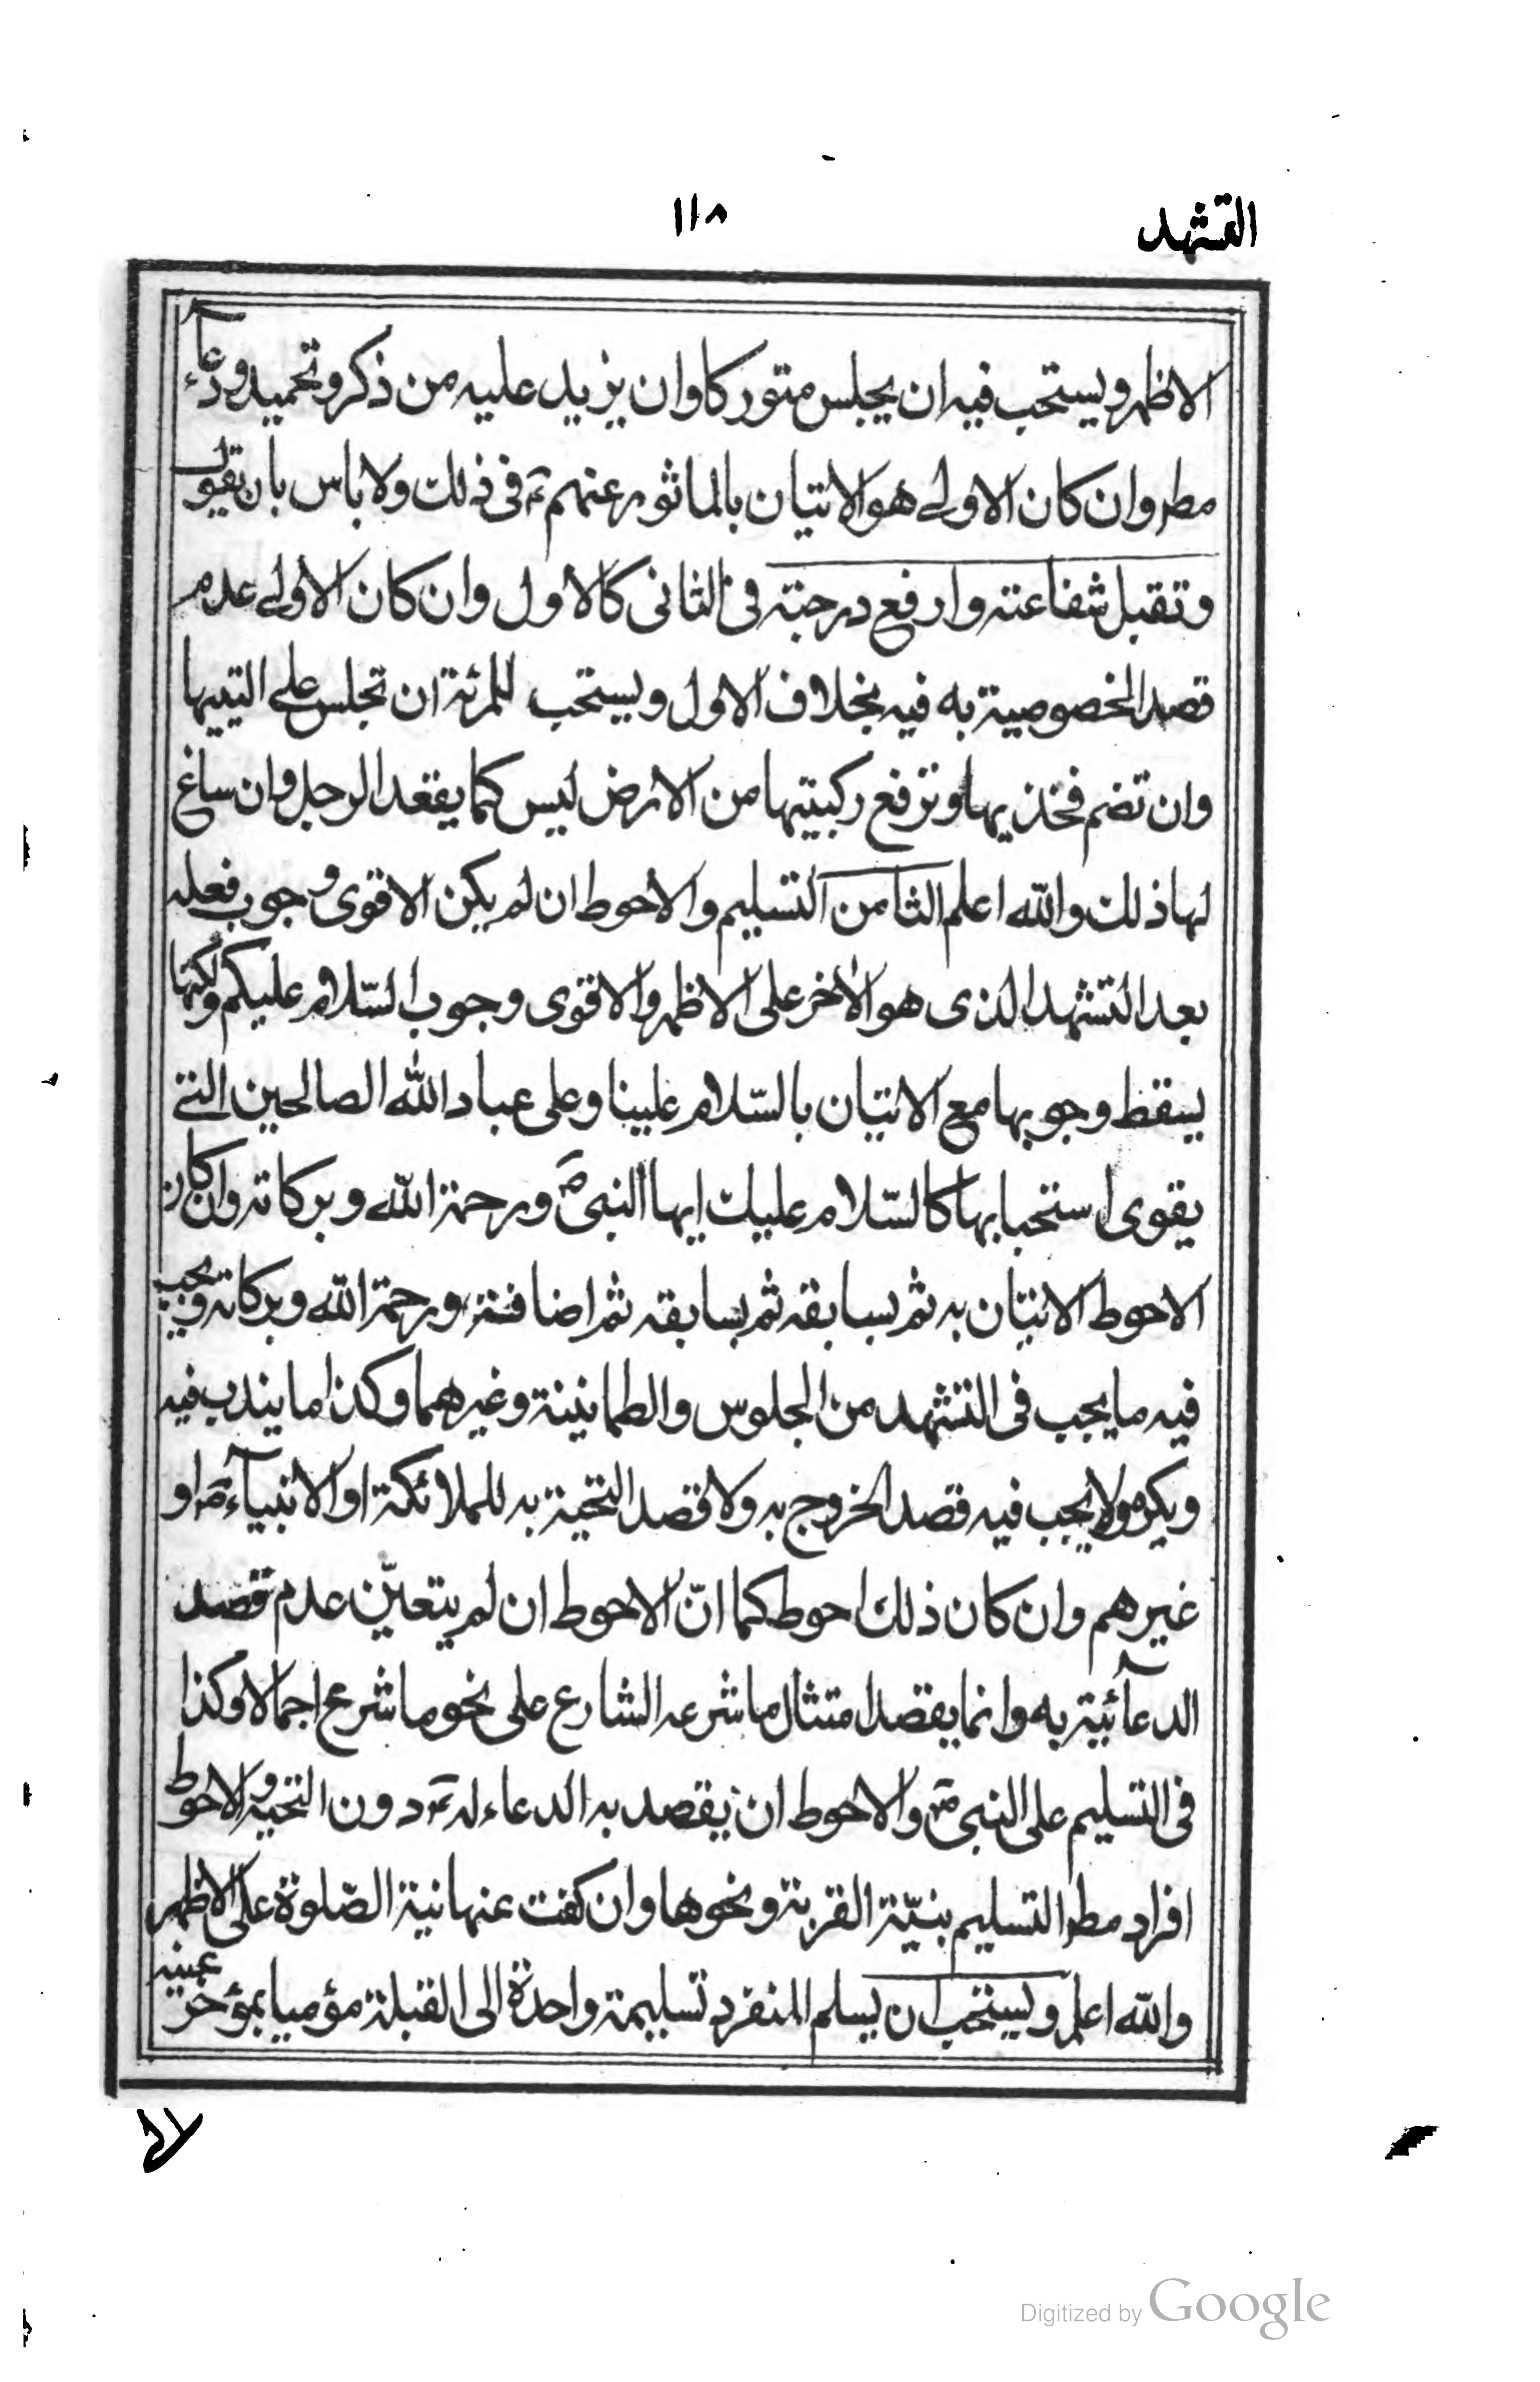 التشهد
١١٨
الاظهر ويستحب فيه ان يجلس متوركا وان يزيد عليه من ذكر وتحميد ودعآء
مطر وان كان الاولى هو الاتيان بالماثور عنهم ع في ذلك ولا باس بان يقول
وتقبل شفاعته وارفع درجته في الثاني كالاول وان كان الاولى عدم
قصد الخصوصية به فيه بخلاف الاول ويستحب للمرئة ان تجلس على اليتيها
وان تضم فخذيها وترفع ركبتيها من الارض ليس كما يقعد الرجل وان ساغ
لها ذلك والله اعلم الثامن التسليم والاحوط ان لم يكن الاقوى وجوب فعله
بعد التشهد الذى هو الاخر على الاظهر والاقوى وجوب السّلام عليكم ولكنها
يسقط وجوبها مع الاتيان بالسّلام علينا وعلى عباد الله الصالحين التي
يقوى استحبابها كالسّلام عليك ايها النبي ص ورحمة الله وبركاته وان كان
الاحوط الاتيان به ثم بسابقه ثم بسابقه ثم اضافة ورحمة الله وبركاته ويجب
فيه ما يجب في التشهد من الجلوس والطمانينة وغيرهما وكذا ما يندب فيه
ويكره ولا يجب فيه قصد الخروج به ولا قصد التحية به للملائكة او الانبيآء ع او
غيرهم وان كان ذلك احوط كما انّ الاحوط ان لم يتعيّن عدم قصد
الدعآئية به وانما يقصد امتثال ما شرعه الشارع على نحو ما شرع اجمالا وكذا
في التسليم على النبي ص والاحوط ان يقصد به الدعاء له ع دون التحية والاحوط
افراد مطر التسليم بنيّة القربة ونحوها وان كفت عنها نية الصّلوة على الاظهر
والله اعلم ويستحب ان يسلم المنفرد تسليمة واحدة الى القبلة مؤميا بمؤخر عينيه
Digitized by Google